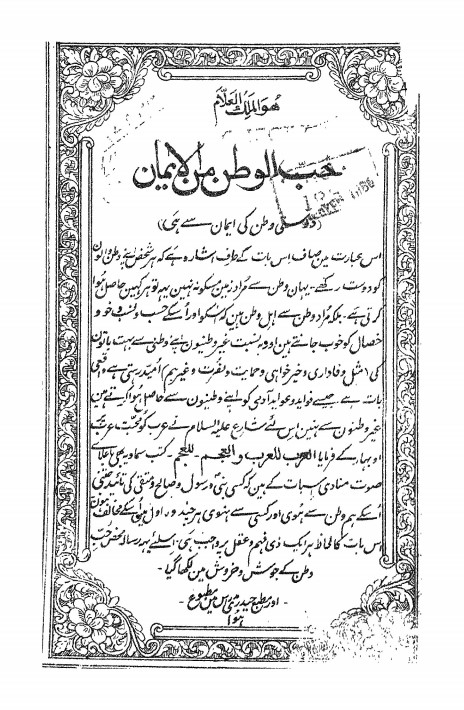 هو الملک العلام
حب الوطن من الایمان
(دوستی وطن کی ایمان سے ہی)
اس عبارت مین صاف اس بات کے طرف اشارہ ہے کہ ہر شخص اپنے وطن والون
کو دوست رکھے - یہان وطن سے مراد زمین سکونہ نہین یہہ تو ہر کہین حاصل ہوا
کرتی ہے - بلکہ مراد وطن سے اہل وطن ہین کہ سکو اور اسکے حسب و نسب و خو و
خصال کو خوب جانتے ہین اور بہ نسبت غیر وطنیون اپنے وطنی سے بہت باتون
کی (مثل وفاداری و خیر خواہی و حمایت و نصرت وغیرہم) امید رہتی ہے واقعی
بات ہے جیسے فواید و عواید آدمی کو اپنے وطنیون سے حاصل ہوا کرتے ہین
غیر وطنون سے نہین اس لئے شارع علیہ السلام نے عرب کو محبت عرب
او بہار کے فرمایا العرب للعرب و العجم للعجم - کتب سماویہ بھی باعلاے
صوت منادی اسبات کے ہین کہ کسی نبی و رسول و صالح و متقی کی تائید جتنی
اسکے ہم وطن سے ہوی اور کسی سے نہوی ہر چند وہ اول مین اسکے مخالف ہون
اس بات کا لحاظ ہر ایک ذی فہم و عقل پر واجب ہی - اسلئے یہہ رسالہ محض حب
وطن کے جوش و خروش مین لکھا گیا -
اور مطبع حیدری مدراس مین مطبوع
ہوا